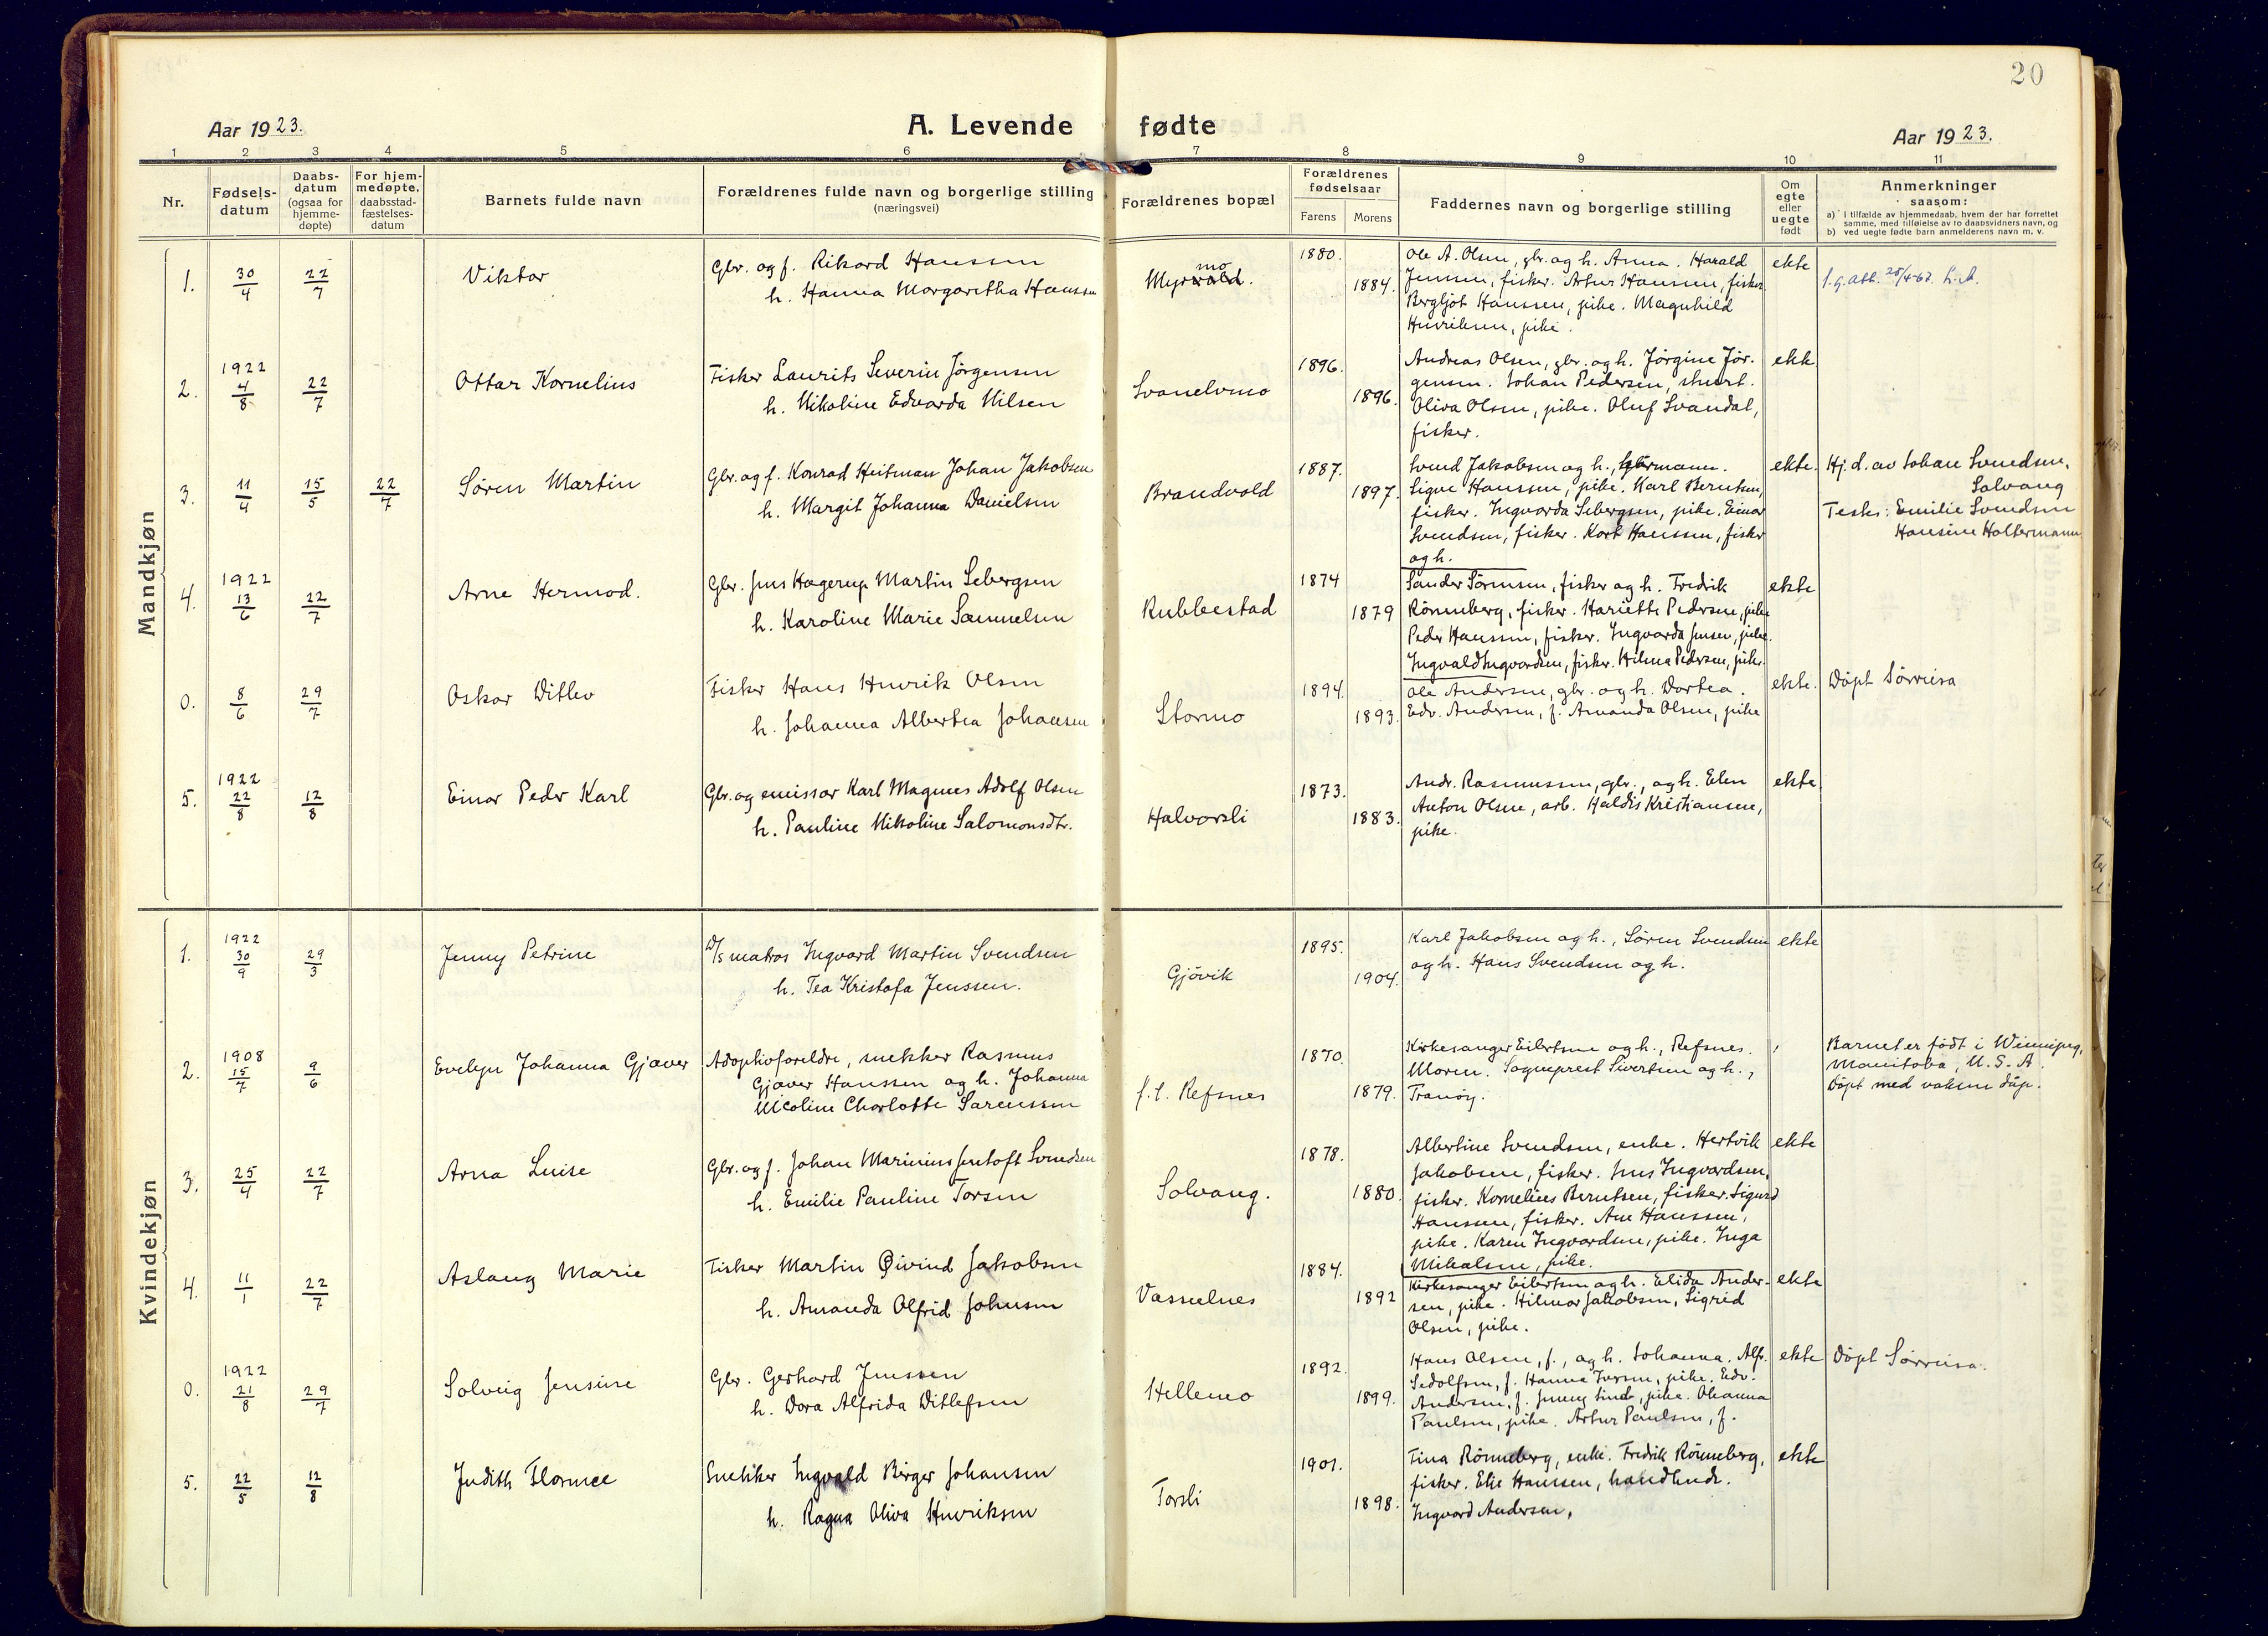 20
Aar 1923.
A. Levende fødte
Aar 1923.
1 2 3 4 5 6 7 8 9 10 11
Nr.
Fødsels-
datum
Daabs-
datum
(ogsaa for
hjemme-
døpte)
For hjem-
medøpte,
daabsstad-
fæstelses-
datum
Barnets fulde navn
Forældrenes fulde navn og borgerlige stilling
(næringsvei)
Forældrenes bopæl
Forældrenes
fødselsaar
Farens Morens
Faddernes navn og borgerlige stilling
Om
egte
eller
uegte
født
Anmerkninger
saasom:
a) i tilfælde av hjemmedaab, hvem der har forrettet
samme, med tilføielse av to daabsvidners navn, og
b) ved uegte fødte barn anmelderens navn m. v.
Mandkjøn
1. 30/4 22/7
Viktor
Gbr. og f. Rikard Hanssen
h. Hanna Margaretha Hanssen
mo
Myrvold.
1880.
1884.
Ole A. Olsen, gbr. og h. Anna. Harald
Jensen, fisker. Artur Hanssen, fisker.
Bergljot Hanssen, pike. Magnhild
Henriksen, pike.
ekte
f. g. att. 25/4-62.
2. 1922 4/8 22/7
Ottar Kornelius
Fisker Laurits Severin Jörgensen
h. Nikoline Edvarda Nilsen
Svanelvmo
1896.
1896.
Andreas Olsen, gbr. og h. Jörgine Jör-
gensen. Johan Pedersen, stuert.
Oliva Olsen, pike. Oluf Svandal,
fisker.
ekte
3. 11/4 15/5 22/7
Sören Martin
Gbr. og f. Konrad Heitman Johan Jakobsen
h. Margit Johanna Danielsen
Brandvold
1887.
1897.
Svend Jakobsen og h.,
Signe Hanssen, pike. Karl Berntsen,
fisker. Ingvarda Sebergsen, pike. Einar
Svendsen, fisker. Kort Hanssen, fisker
og h.
ekte.
Hj. d. av Johan Svendsen,
Solvang
Testes: Emilie Svendsen
Hansine Holtermann
4. 1922 13/6 22/7
Arne Hermod.
Gbr. Jens Hagerup Martin Sebergsen
h. Karoline Marie Samuelsen
Rubbestad
1874
1879
Sander Sörensen, fisker og h. Fredrik
Rönneberg, fisker. Hariette Pedersen, pike
Peder Hanssen, fisker. Ingvarda Jensen, pike.
Ingvald Ingvardsen, fisker. Hilma Pedersen, pike.
ekte
0. 8/6 29/7
Oskar Ditlev
Fisker Hans Henrik Olsen
h. Johanna Albertea Johansen
Stormo
1894.
1893.
Ole Andersen, gbr. og h. Dortea.
Edv. Andersen, f. Amanda Olsen, pike
ekte.
Döpt Sörreisa
5. 1922 22/8 12/8
Einar Peder Karl
Gbr. og emissær Karl Magnus Adolf Olsen
h. Pauline Nikoline Salomonsdtr.
Halvorsli
1873.
1883.
Andr. Rasmussen, gbr., og h. Elen
Anton Olsen, arb. Haldis Kristiansen,
pike.
ekte
Kvindekjøn
1. 1922 30/9 29/3
Jenny Petrine
D/s matros Ingvard Martin Svendsen
h. Tea Kristofa Jenssen.
Gjövik
1895.
1904.
Karl Jakobsen og h., Sören Svendsen
og h. Hans Svendsen og h.
ekte
2. 1908 15/7 9/6
Evelyn Johanna Gjæver
Adoptivforeldre, snekker Rasmus
Gjæver Hanssen og h. Johanna
Nicoline Charlotte Sarenssen
f. t. Refsnes
1870.
1879.
Kirkesanger Eilertsen og h., Refsnes.
Moren. Sogneprest Sivertsen og h.,
Tranöy.
Barnet er födt i Winnipeg,
Manitoba, U. S. A.
Döpt med voksen dåp.
3. 25/4 22/7
Arna Luise
Gbr. og f. Johan Marinius Jentoft Svendsen
h. Emilie Pauline Torsen
Solvang.
1878.
1880.
Albertine Svendsen, enke. Hertvik
Jakobsen, fisker. Jens Ingvardsen,
fisker. Kornelius Berntsen, fisker. Sigurd
Hanssen, fisker. Ane Hanssen,
pike. Karen Ingvardsen, pike. Inga
Mikalsen, pike.
ekte
4. 11/1 22/7
Aslaug Marie
Fisker Martin Øivind Jakobsen
h. Amanda Olfrid Johnsen
Vasselnes
1884.
1892
Kirkesanger Eilertsen og h. Elida Ander-
sen, pike. Hilmar Jakobsen, Sigrid
Olsen, pike.
ekte
0. 1922 21/8 29/7
Solveig Jensine
Gbr. Gerhard Jenssen
h. Dora Alfrida Ditlefsen
Hellemo
1892.
1899.
Hans Olsen, f., og h. Johanna. Alfr.
Sedolfsen, f. Hanna Iversen, pike. Edv.
Andersen, f. Jenny Lind, pike. Oleanna
Paulsen, pike. Artur Paulsen, f.
ekte
Döpt Sörreisa.
5. 22/5 12/8
Judith Florence
Snekker Ingvald Birger Johansen
h. Ragna Oliva Henriksen
Torsli
1901.
1898.
Tina Rönneberg, enke. Fredrik Rönneberg,
fisker. Elie Hanssen, handlende.
Ingvard Andersen,
ekte